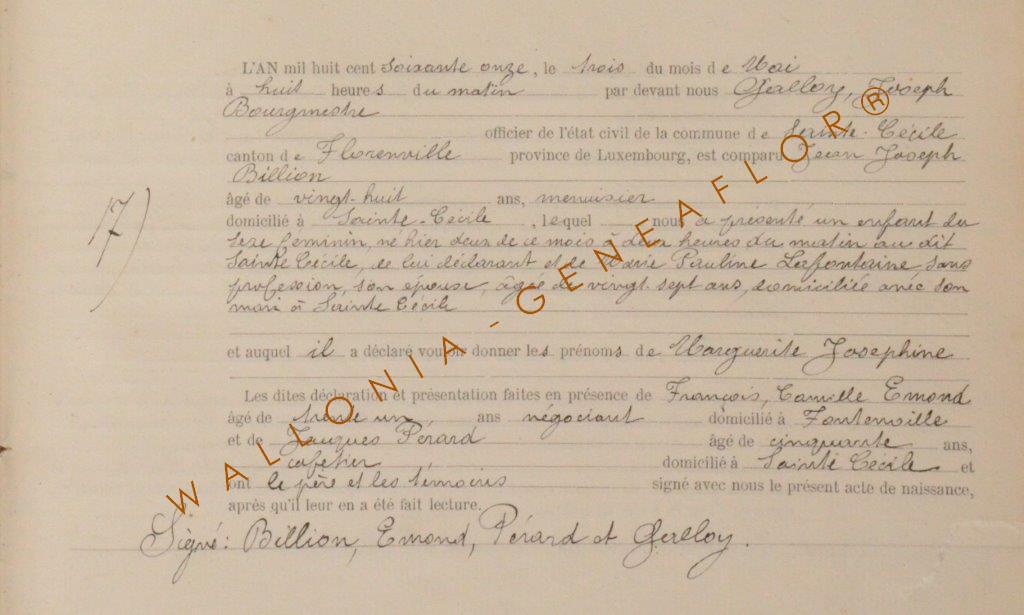 L'AN mil huit cent soixante onze, le trois du mois de Mai
à huit heures du matin par devant nous Galloy, Joseph
Bourgmestre
officier de l'état civil de la commune de Sainte-Cécile
canton de Florenville province de Luxembourg, est comparu Jean Joseph
Billion
âgé de vingt-huit ans, menuisier
domicilié à Sainte-Cécile, lequel nous a présenté un enfant du
17)
sexe féminin, né hier deux de ce mois à deux heures du matin au dit
Sainte Cécile, de lui déclarant et de Marie Pauline Lafontaine, sans
profession, son épouse, âgée de vingt-sept ans, domiciliée avec son
mari à Sainte Cécile
et auquel il a déclaré vouloir donner les prénoms de Marguerite Josephine
Les dites déclaration et présentation faites en présence de François, Camille Emond
âgé de trente un ans négociant domicilié à Fontenoille
et de Jacques Pérard âgé de cinquante ans,
cafetier domicilié à Sainte Cécile et
ont le père et les témoins signé avec nous le présent acte de naissance,
après qu'il leur en a été fait lecture.
Signé: Billion, Emond, Pérard et Galloy.
WALLONIA-GENEAFLOR®